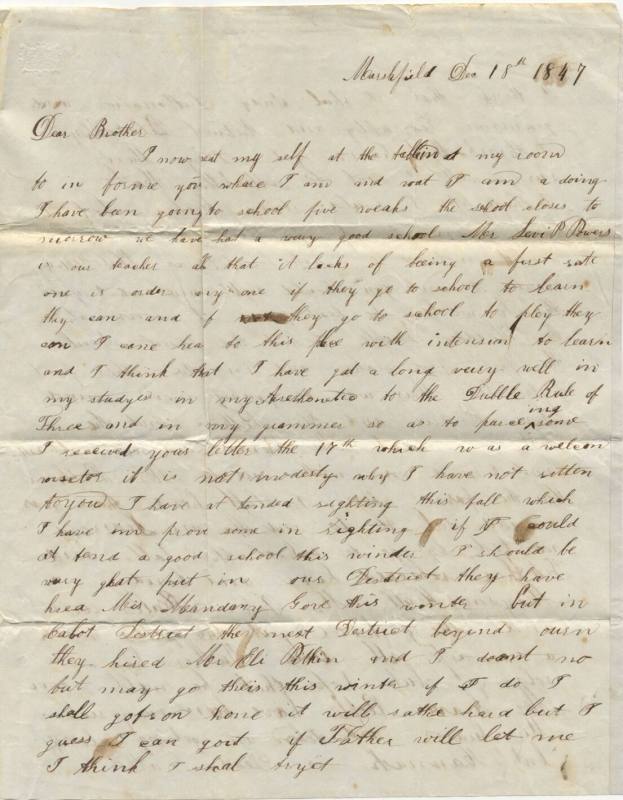 Marshfield Dec 18th 1847
Dear Brother
I now seat my self at the table in my room
to in forme you where I am and wat I am a doing
I have been going to school five weaks the school closes to
morrow we have had a very good school Mr Levi P Powers
is our teacher all that it lacks of being a first rate
one is order any one if they go to school to learn
thy can and if they go to school to pley they
can I cane hea to this place with intension to learn
and I think that I have got a long veery well in
my studyes in my Arethmetic to the Dubble Rule of
Three and in my grammer so as to parce ing some
I received your letter the 17th which w as a welcom
it is not modesty why I have not ritten
to you I have at tended righting this fall which
I have im prove some in righting if I could
at tend a good school this winder I should be
very glad but in our Destrict they have
hired Mis Mandany Gore this wonter but in
Cabot Destrict the next Destrict beyond ourn
they hired Mr Eli Pitkin and I doant no
but may go theis this winter if I do I
shall go from home it will rathe hard but I
guess I can go it if Father will let me
I think I shal try it